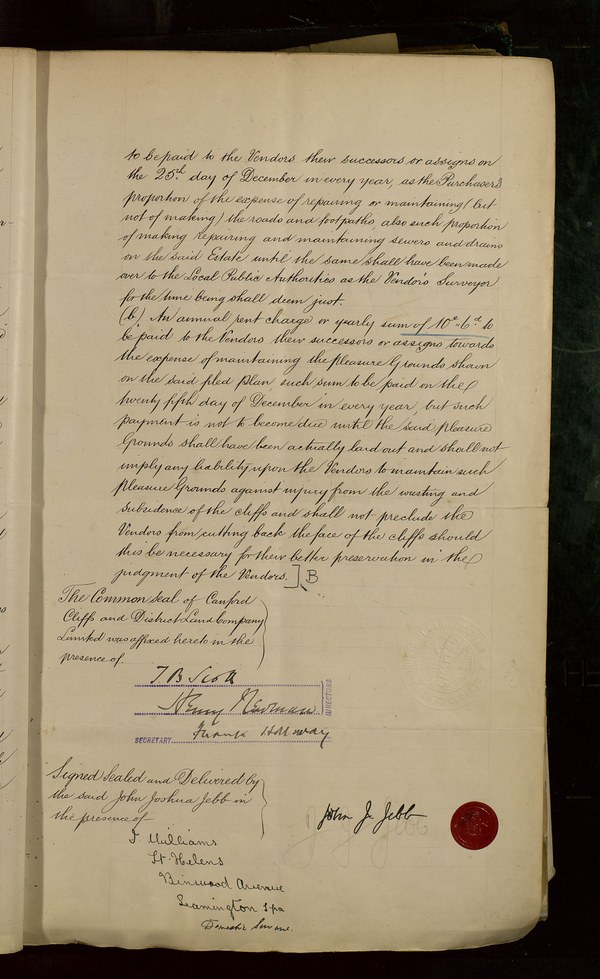 to be paid to the Vendors their successors or assigns on
the 25th day of December in every year, as the Purchasers
proportion of the expense of repairing or maintaining (but
not of making) the roads and footpaths, also such proportion
of making repairing and maintaining sewers and drains
on the said Estate until the same shall have been made
over to the Local Public Authorities as the Vendors Surveyor
for the time being shall deem just.
(b) An annual rent charge or yearly sum of 10s-6d to
be paid to the Vendors their successors or assigns towards
the expense of maintaining the pleasure Grounds shown
on the said pled plan, such sum to be paid on the
twenty fifth day of December in every year, but such
payment is not to become due until the said pleasure
Grounds shall have been actually laid out and shall not
imply any liability upon the Vendors to maintain such
pleasure Grounds against injury from the wasting and
subsidence of the cliffs and shall not preclude the
Vendors from cutting back the face of the cliffs should
this be necessary for their better preservation in the
judgment of the Vendors.] B
The Common Seal of Canford
Cliffs and District Land Company
Limited was affixed hereto in the
presence of
T B Scott
Henry Newman
DIRECTORS
SECRETARY Frank
Signed Sealed and Delivered by
the said John Joshua Jebb in
the presence of
John J. Jebb
J Williams
St Helens
Binswood Avenue
Leamington Spa